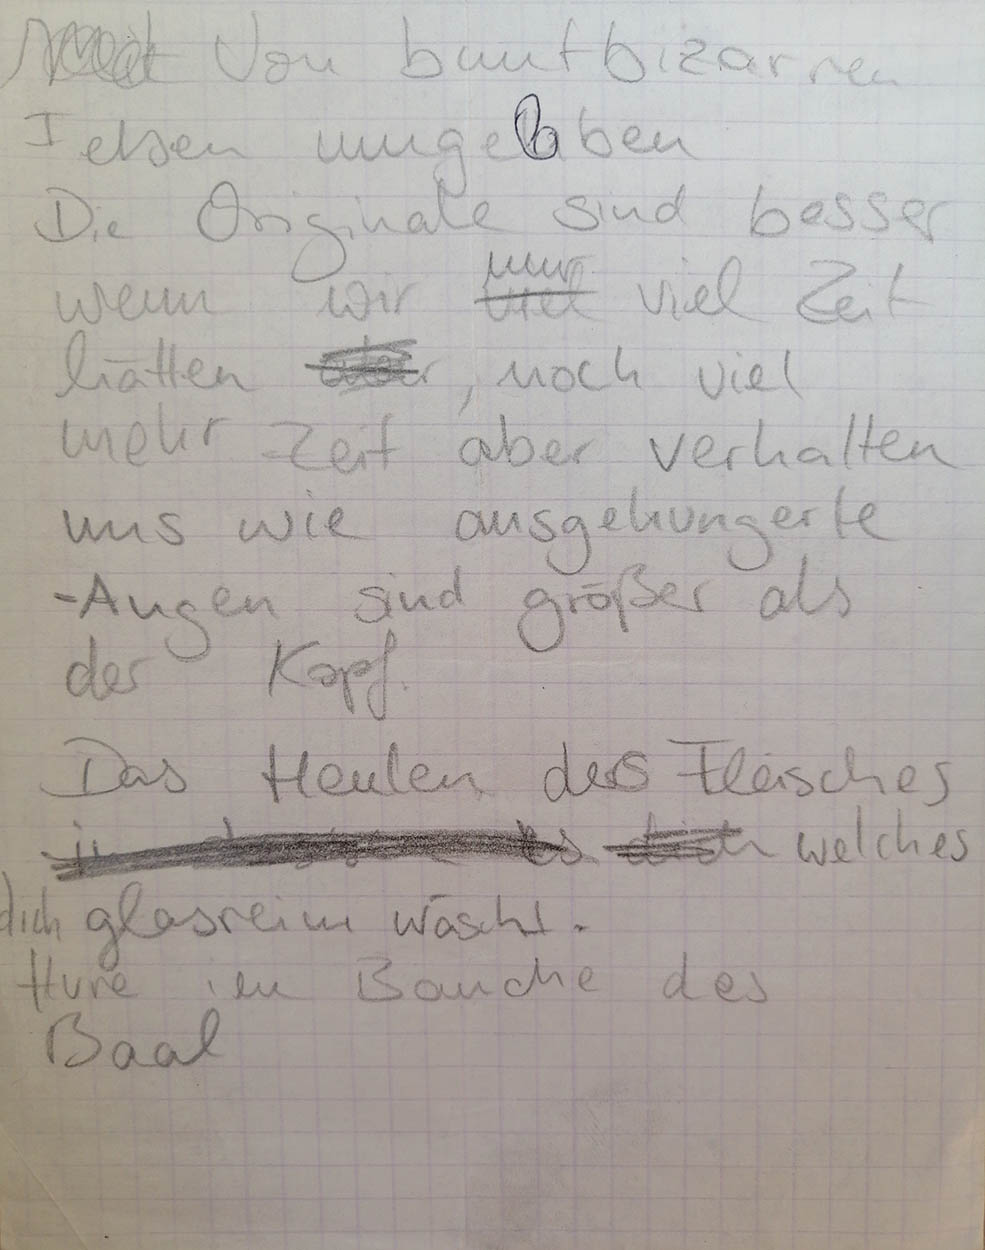 Von buntbizarren
Felsen umgeben
Die Originale sind besser
wenn wir nur viel Zeit
hätten, noch viel
mehr Zeit aber verhalten
uns wie ausgehungerte
-Augen sind größer als
der Kopf.
Das Heulen des Fleisches
welches
dich glasreim wäscht.
Hure im Bauche des
Baal